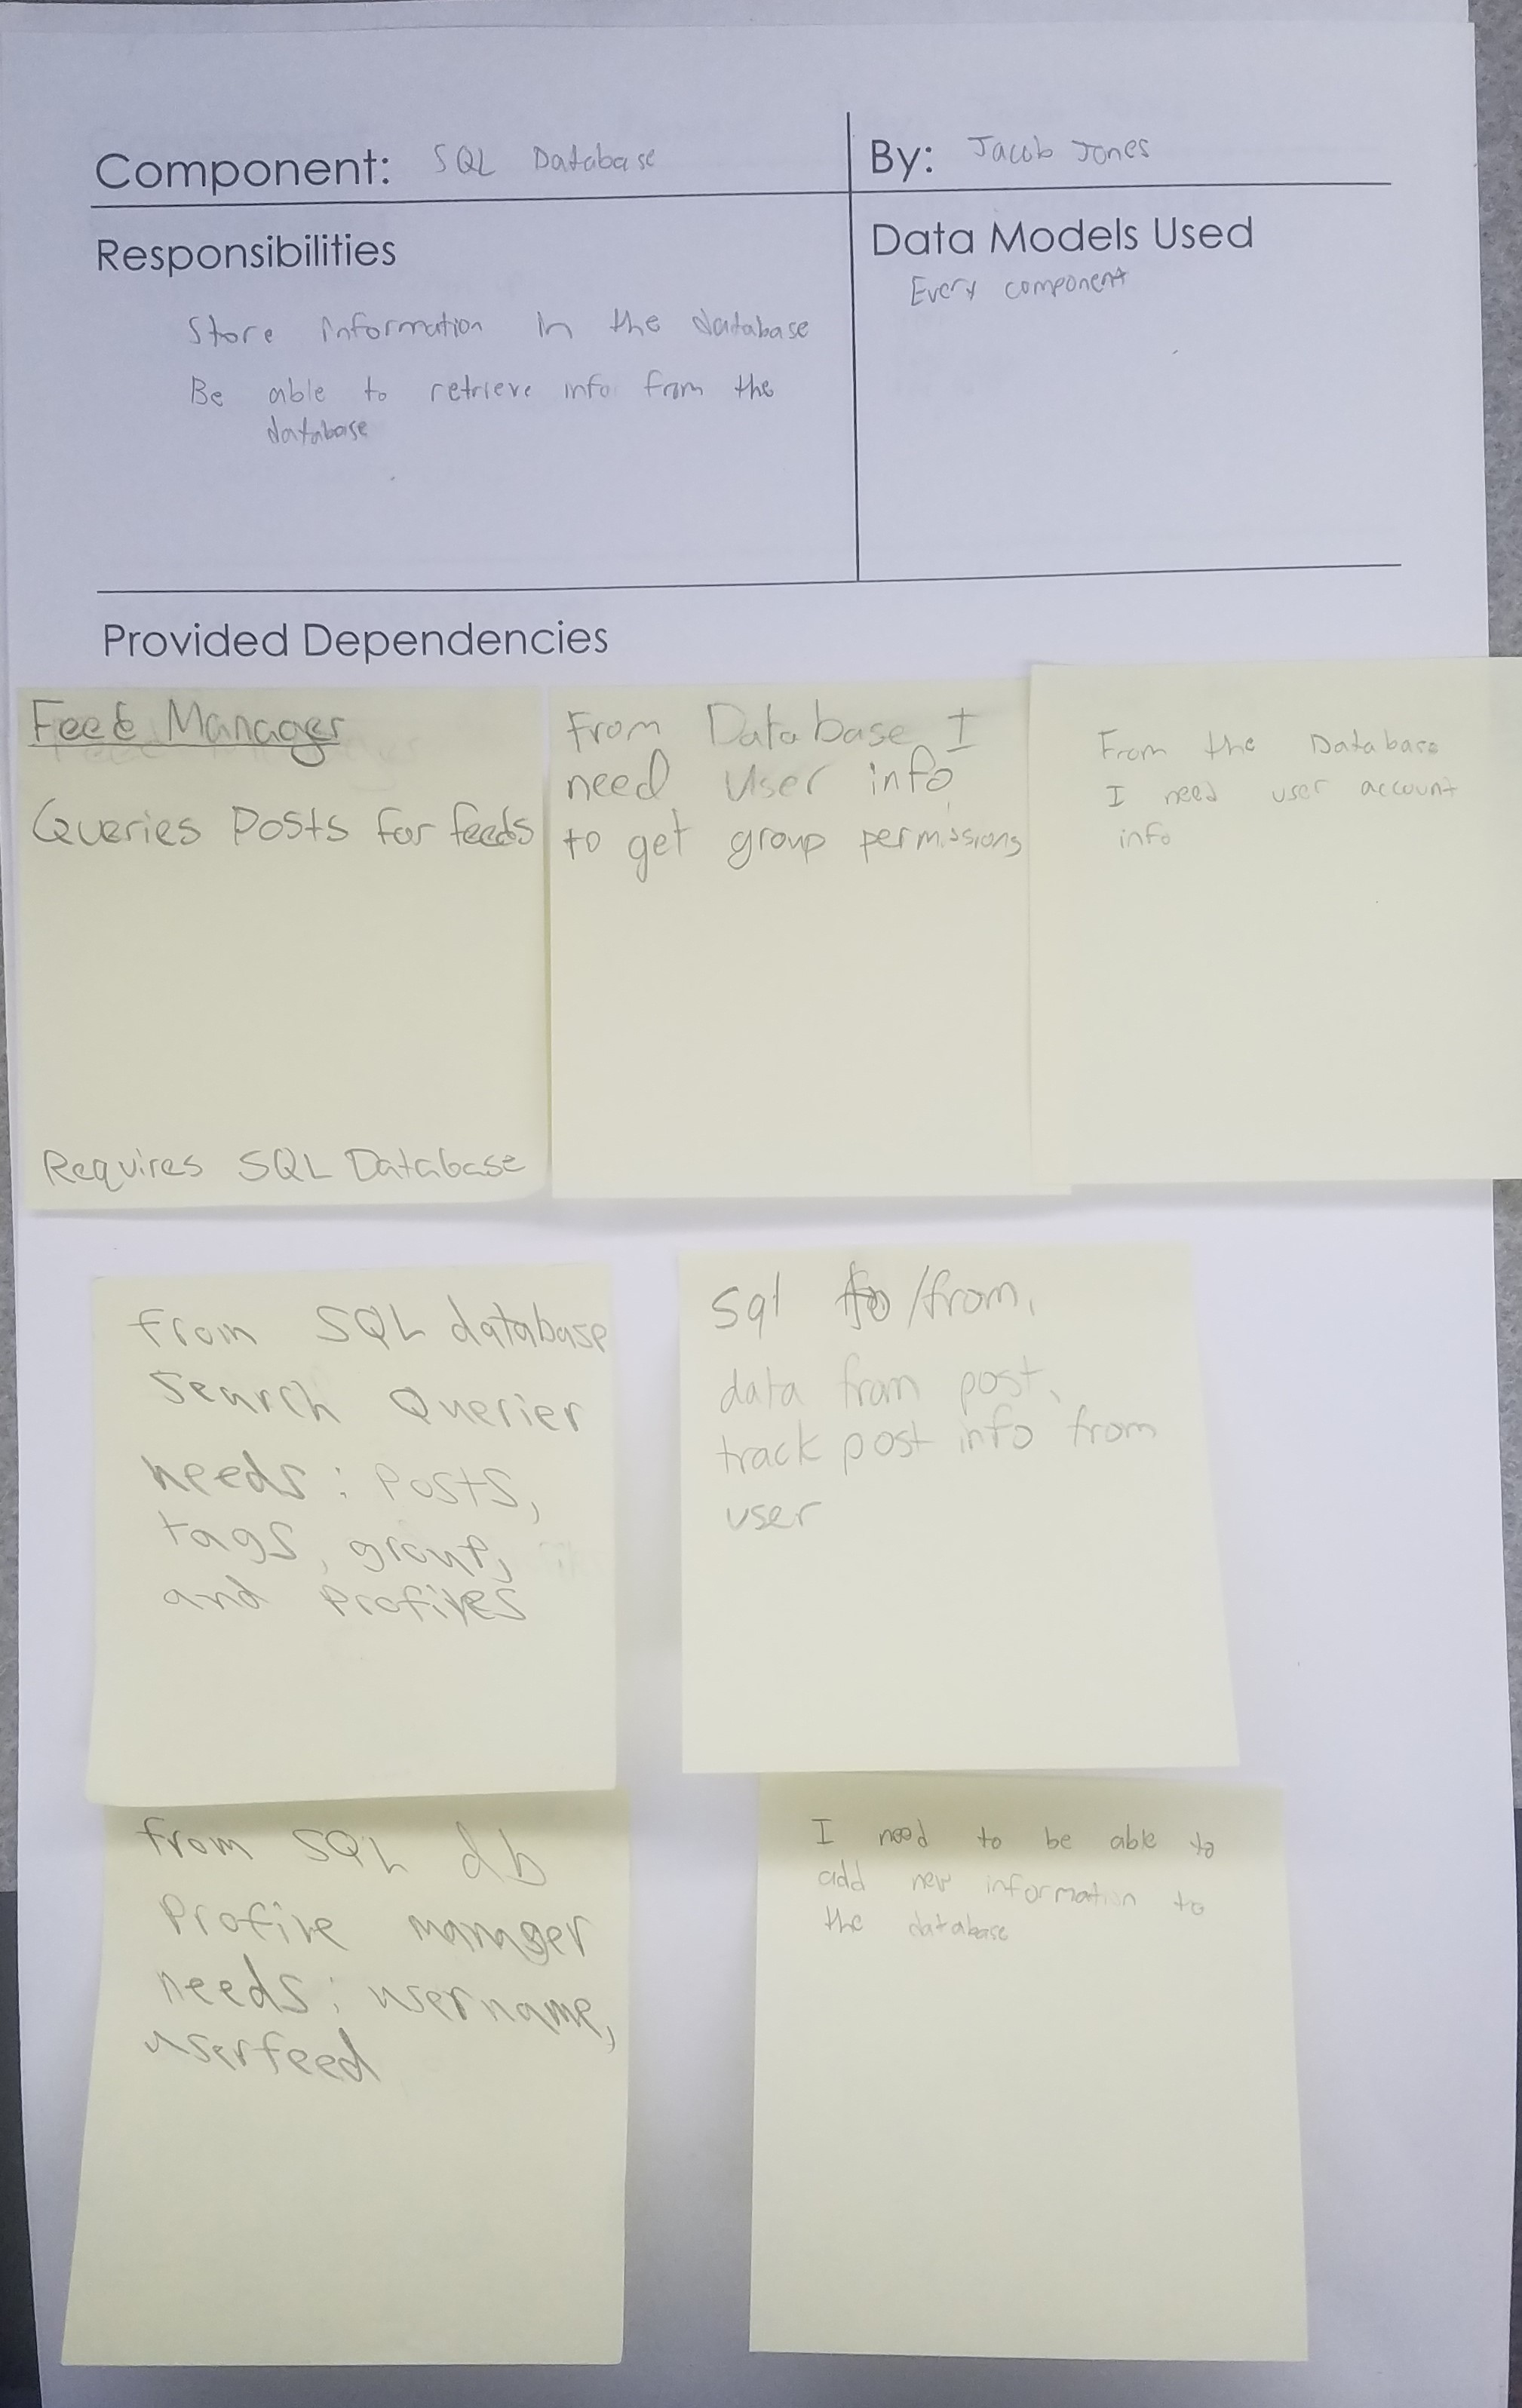 Component: SQL Database
By: Jacob Jones
Responsibilities
Store information in the database
Be able to retrieve info from the
database
Data Models Used
Every component
Provided Dependencies
Feed Manager
Queries Posts for feeds
Requires SQL Database
From Database I
need User info
to get group permissions
From the Database
I need user account
info
from SQL database
Search Querier
needs: Posts,
tags, group,
and Profiles
Sql to/from.
data from post,
track post info from
user
from SQL db
Profile manager
needs: username,
userfeed
I need to be able to
add new information to
the database